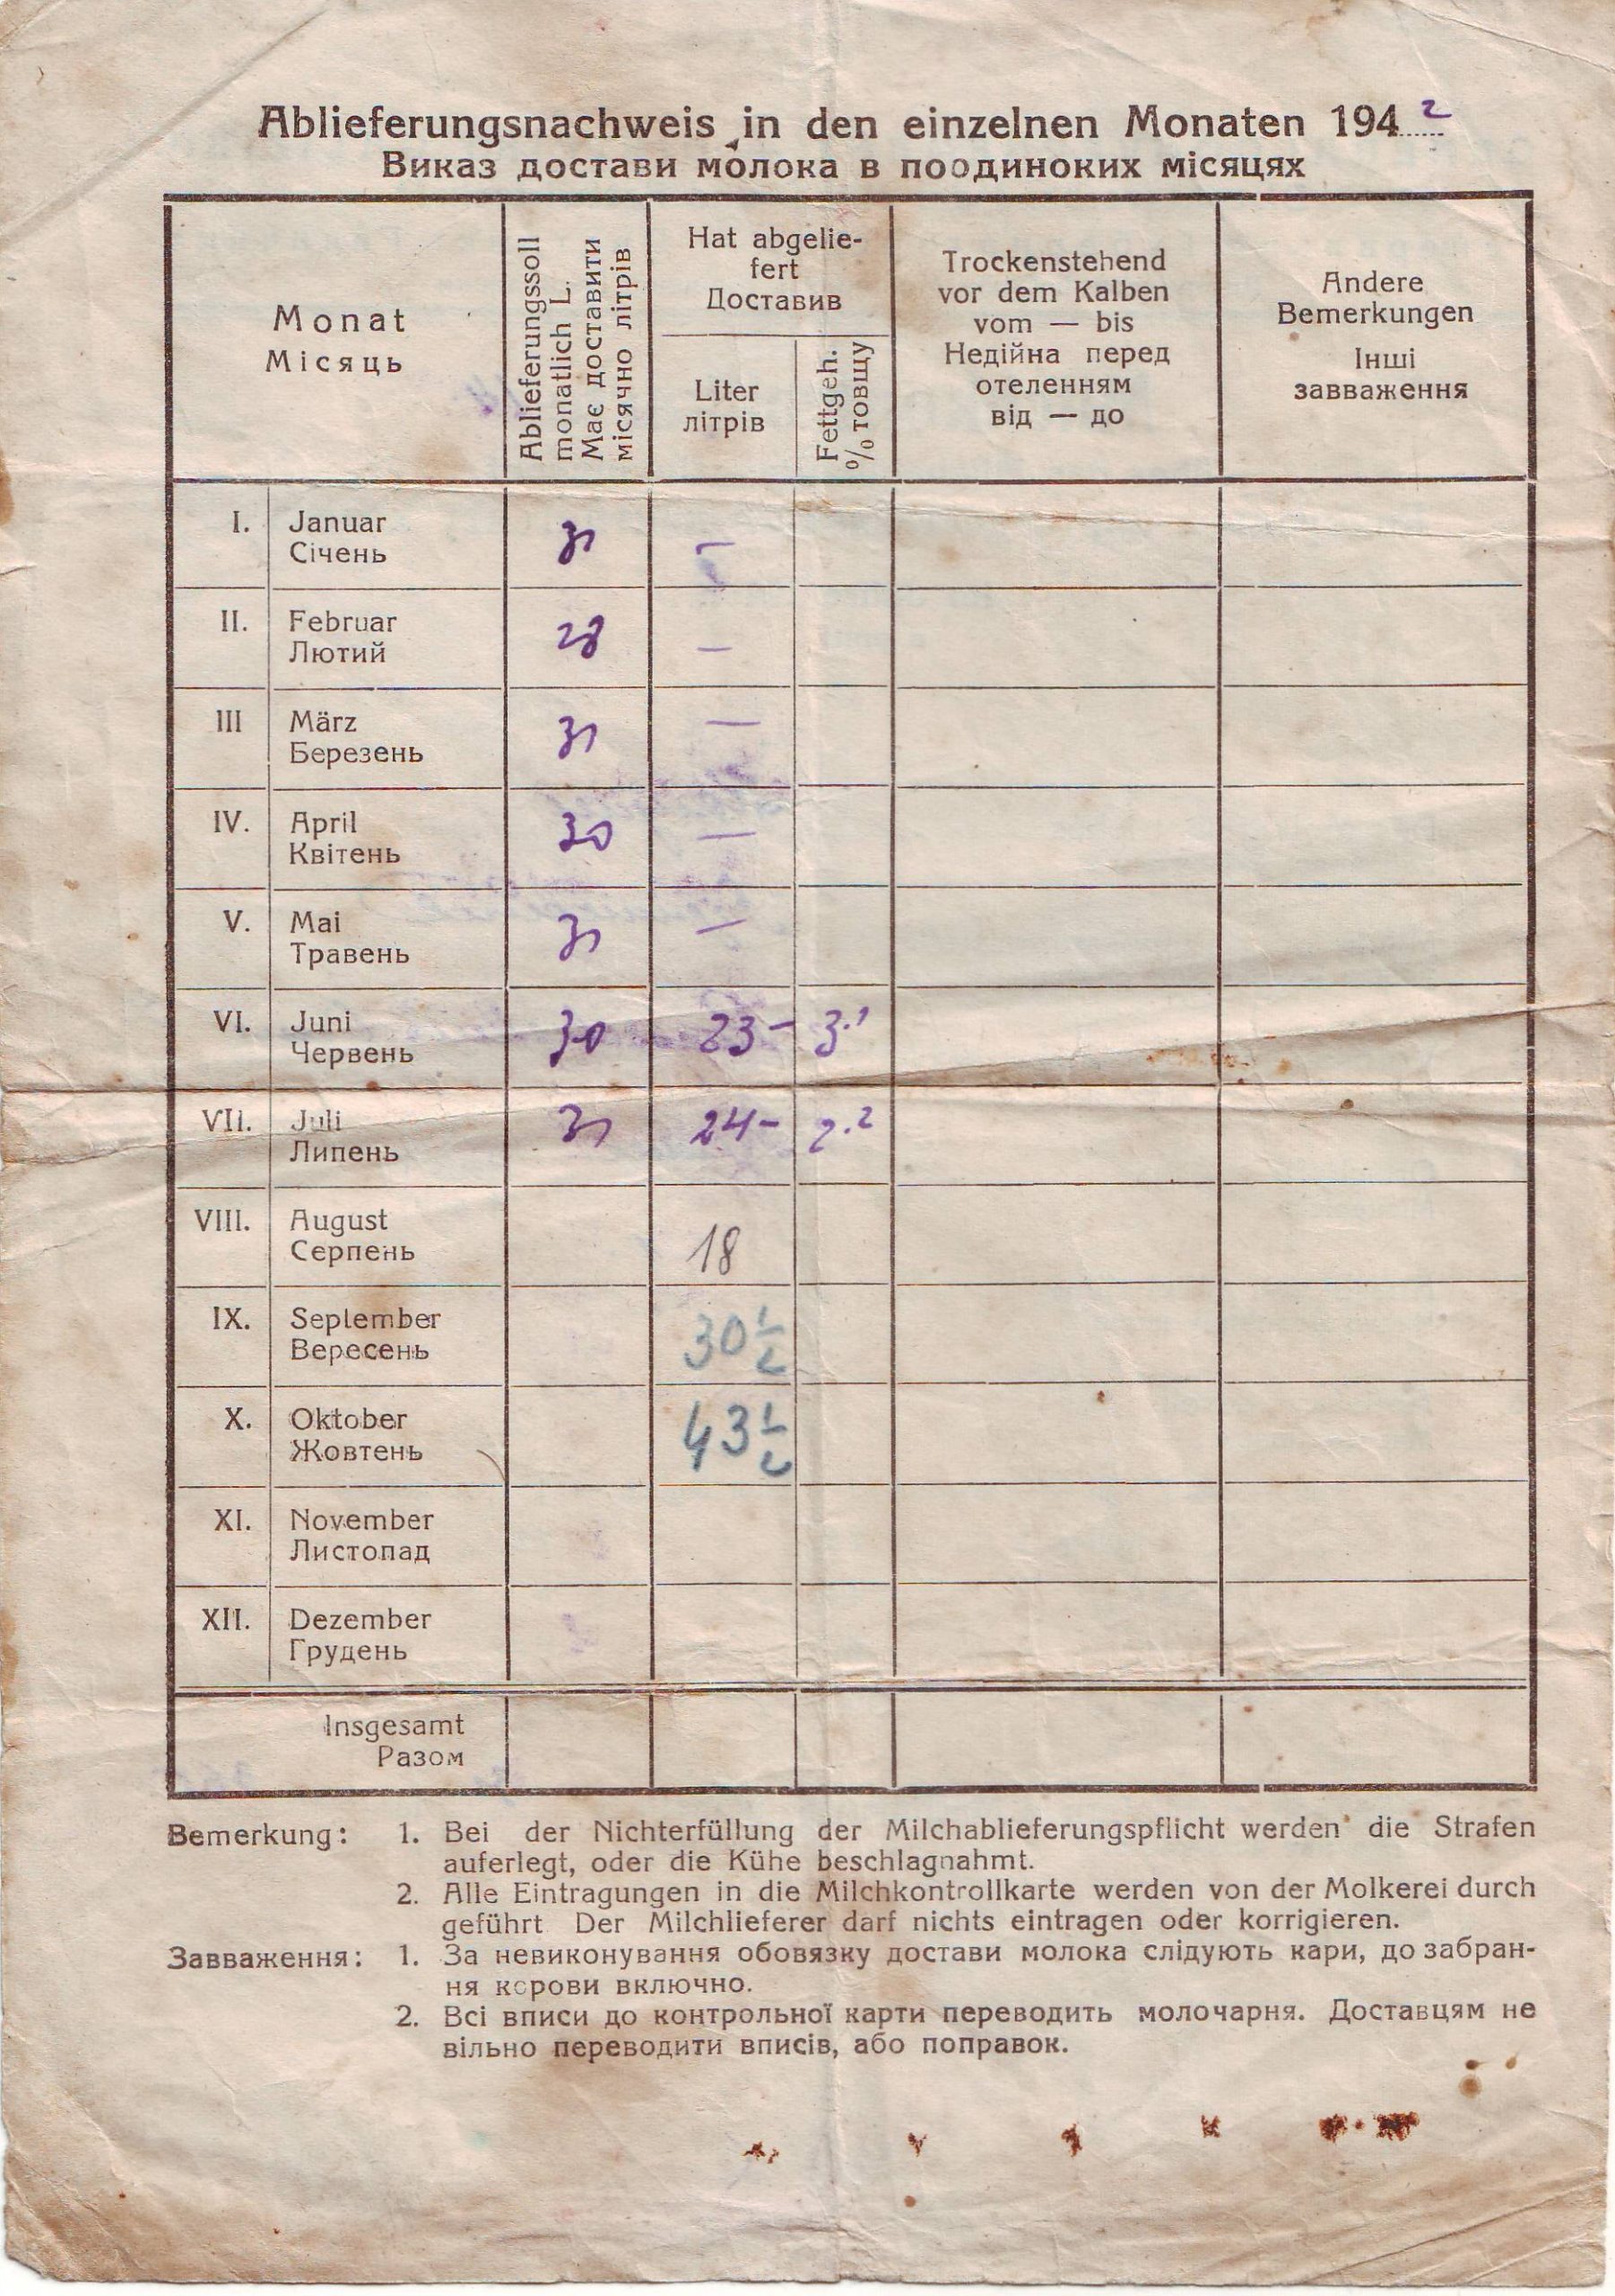 Ablieferungsnachweis in den einzelnen Monaten 1942
Виказ достави молока в поодиноких місяцях
Monat
Місяць
Ablieferungssoll
monatlich L.
Має доставити
місячно літрів
Hat abgelie-
fert
Доставив
Liter
літрів
Fettgeh.
% товщу
Trockenstehend
vor dem Kalben
vom — bis
Недійна перед
отеленням
від — до
Andere
Bemerkungen
Інші
завваження
I. Januar 31 —
Січень
II. Februar 28 —
Лютий
III März 31 —
Березень
IV. April 30 —
Квітень
V. Mai 31 —
Травень
VI. Juni 30 23- 3.1
Червень
VII. Juli 31 24- 2.2
Липень
VIII. August 18
Серпень
IX. September 30 1/2
Вересень
X. Oktober 43 1/2
Жовтень
XI. November
Листопад
XII. Dezember
Грудень
Insgesamt
Разом
Bemerkung: 1. Bei der Nichterfüllung der Milchablieferungspflicht werden die Strafen
auferlegt, oder die Kühe beschlagnahmt.
2. Alle Eintragungen in die Milchkontrollkarte werden von der Molkerei durch
geführt Der Milchlieferer darf nichts eintragen oder korrigieren.
Завваження: 1. За невиконування обовязку достави молока слідують кари, до забран-
ня корови включно.
2. Всі вписи до контрольної карти переводить молочарня. Доставцям не
вільно переводити вписів, або поправок.